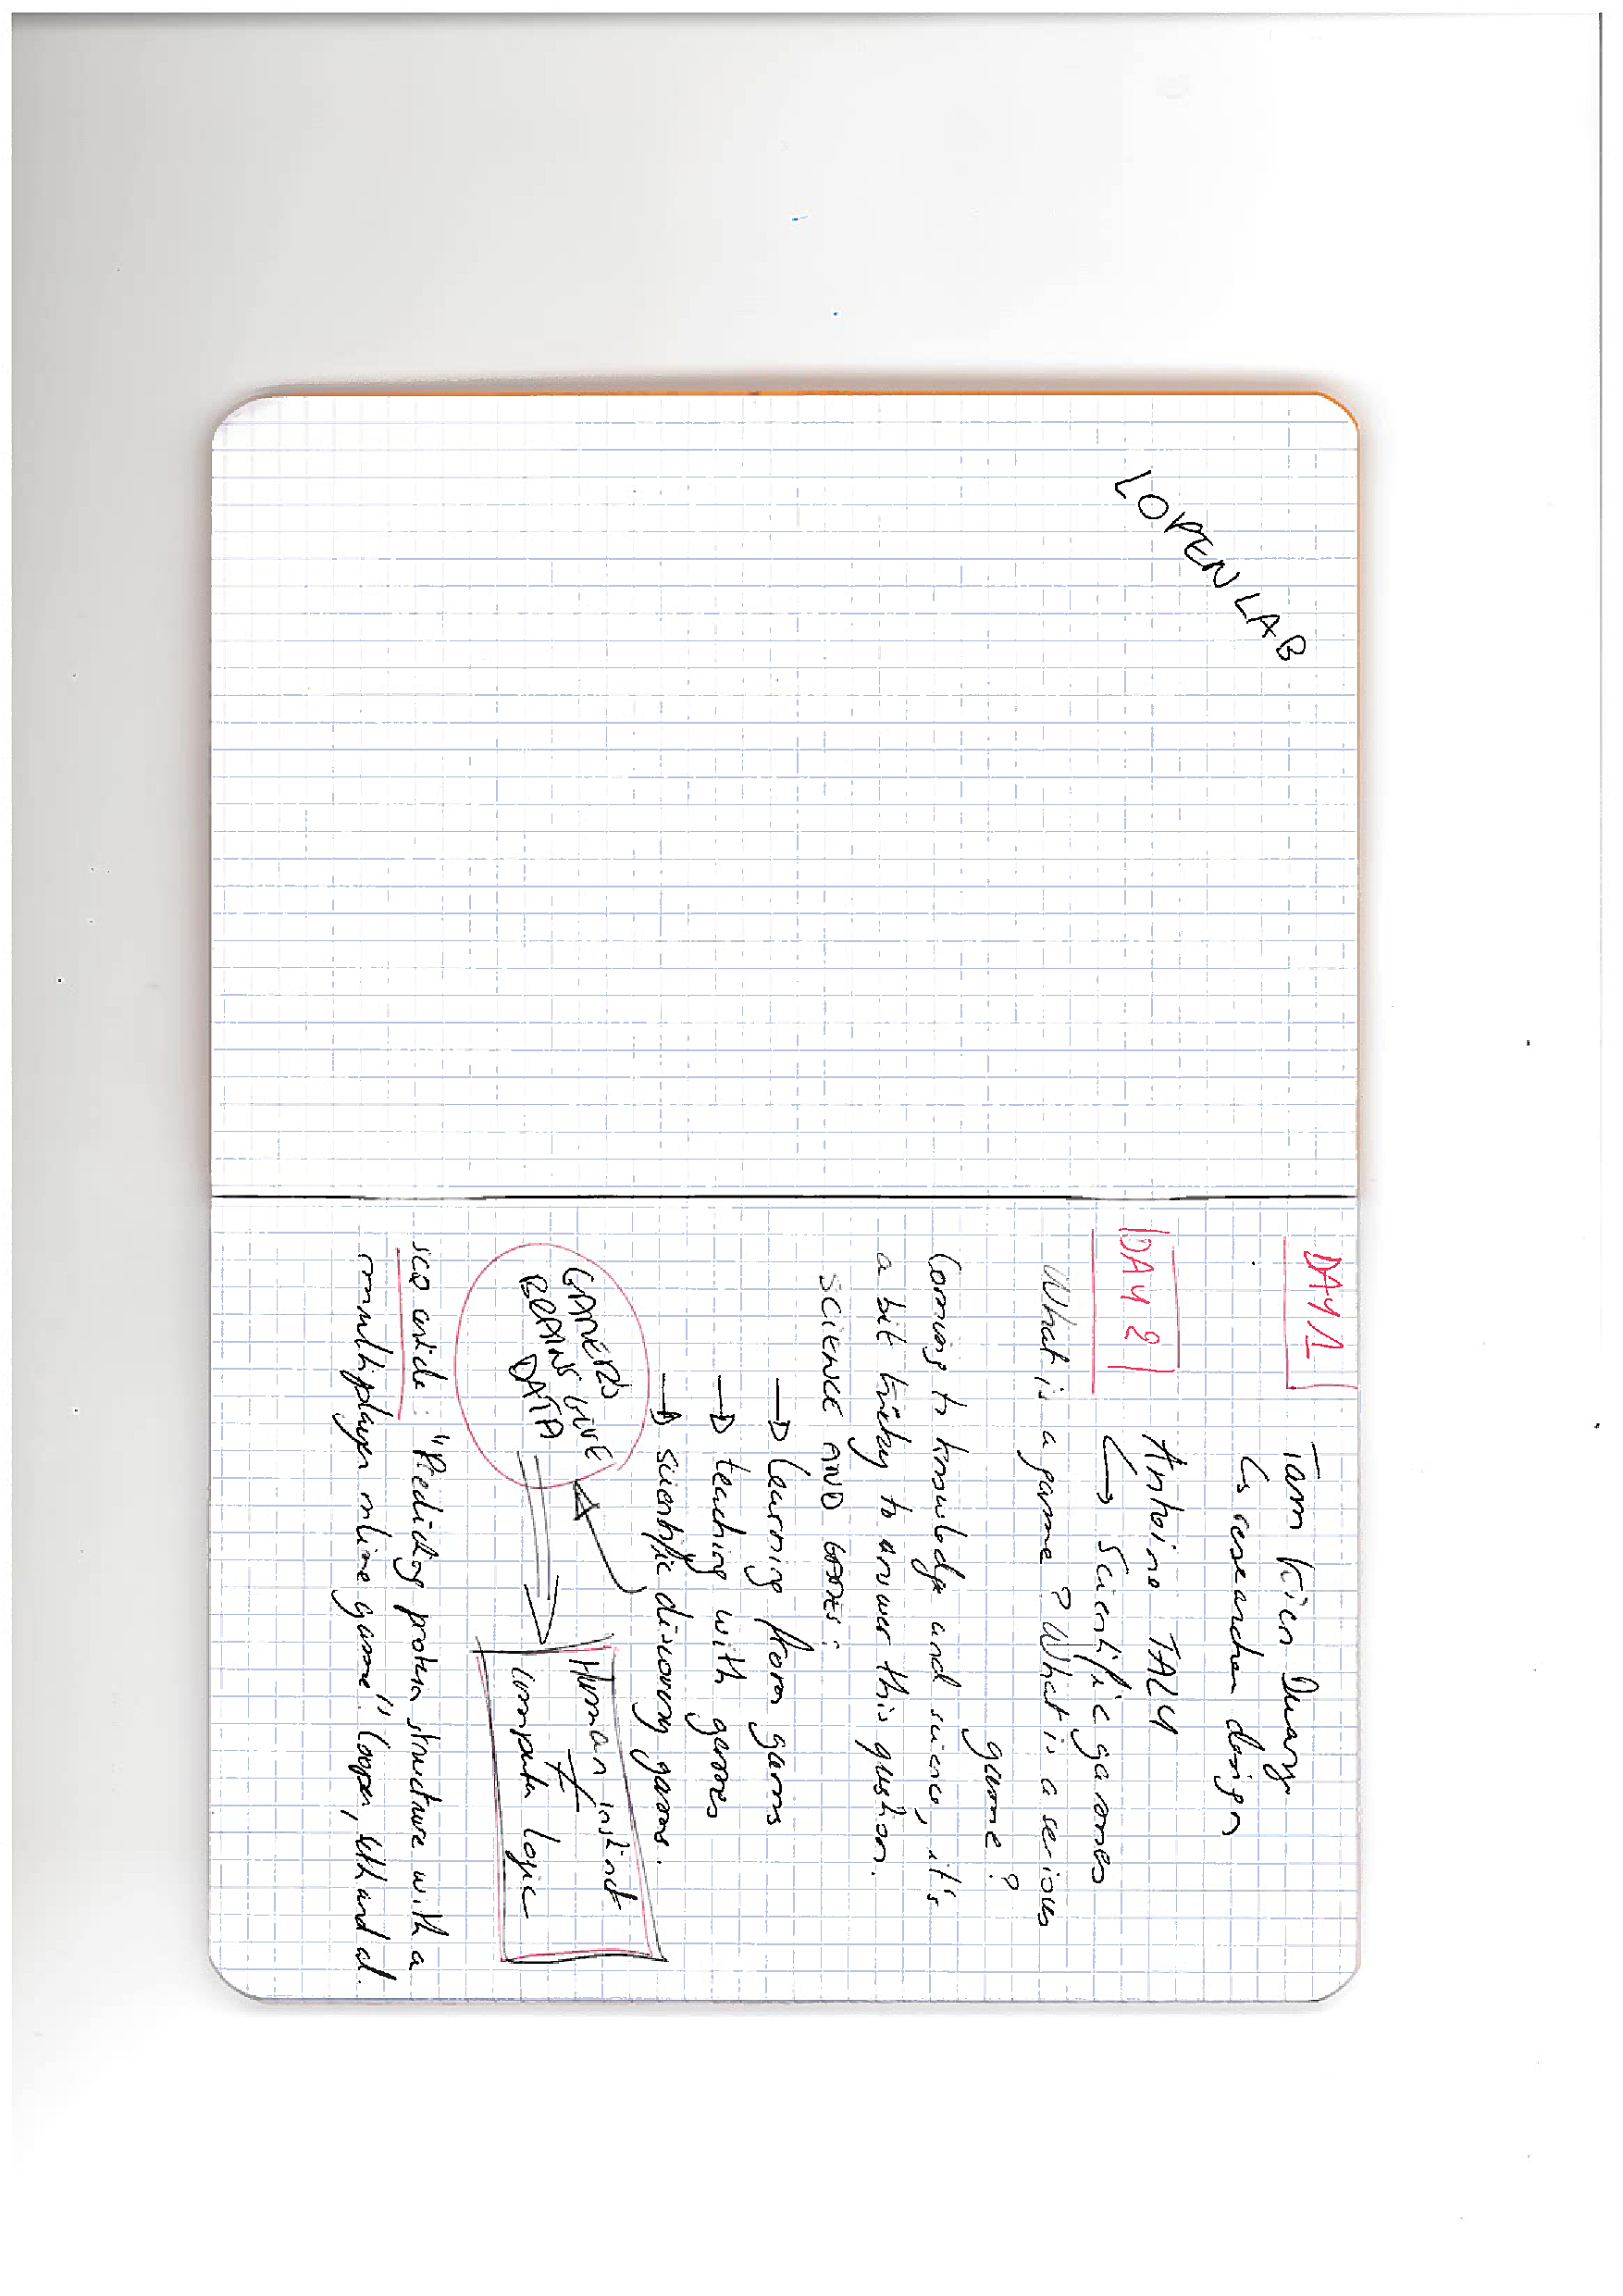 LOPEN LAB
DAY 1
Tam Kien Duong
↳ researcher design
DAY 2
Antoine TALY
↳ Scientific games
What is a game? What is a serious
game?
Coming to knowledge and science, it's
a bit tricky to answer this question.
SCIENCE AND GAMES:
→ learning from games
→ teaching with games
→ scientific discovery games.
GAMERS
BRAINS GIVE
DATA
Human instinct
≠
computer logic
see article: "Predicting protein structure with a
multiplayer online game." Cooper, Seth and al.